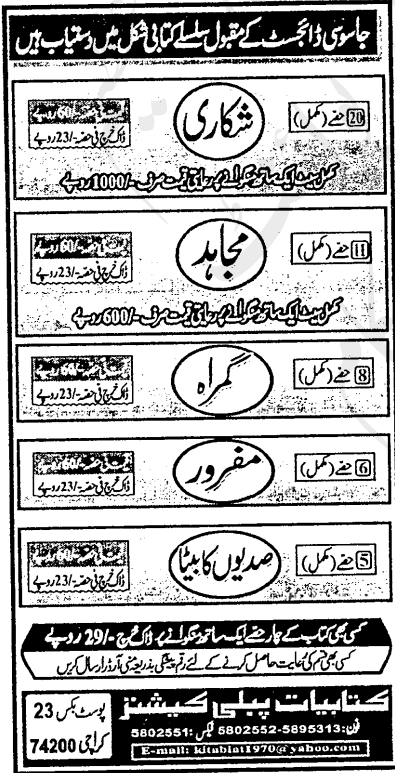 جاسوسی ڈائجسٹ کے مقبول سلسلے کتابی شکل میں دستیاب ہیں
20 حصے (مکمل)
شکاری
قیمت فی حصہ -/60 روپے
ڈاک خرچ فی حصہ -/23 روپے
مکمل سیٹ ایک ساتھ منگوانے پر رعایتی قیمت صرف -/1000 روپے
11 حصے (مکمل)
مجاہد
قیمت فی حصہ -/60 روپے
ڈاک خرچ فی حصہ -/23 روپے
مکمل سیٹ ایک ساتھ منگوانے پر رعایتی قیمت صرف -/600 روپے
8 حصے (مکمل)
گمراہ
قیمت فی حصہ -/60 روپے
ڈاک خرچ فی حصہ -/23 روپے
6 حصے (مکمل)
مفرور
قیمت فی حصہ -/60 روپے
ڈاک خرچ فی حصہ -/23 روپے
5 حصے (مکمل)
صدیوں کا بیٹا
ڈاک خرچ فی حصہ -/23 روپے
کسی بھی کتاب کے چار حصے ایک ساتھ منگوانے پر ڈاک خرچ -/29 روپے
کسی بھی قسم کی رعایت حاصل کرنے کے لئے رقم پیشگی بذریعہ منی آرڈر ارسال کریں
کتابیات پبلی کیشنز
فون: 5802552-5895313 فیکس: 5802551
E-mail: kitabiat1970@yahoo.com
پوسٹ بکس 23
کراچی 74200